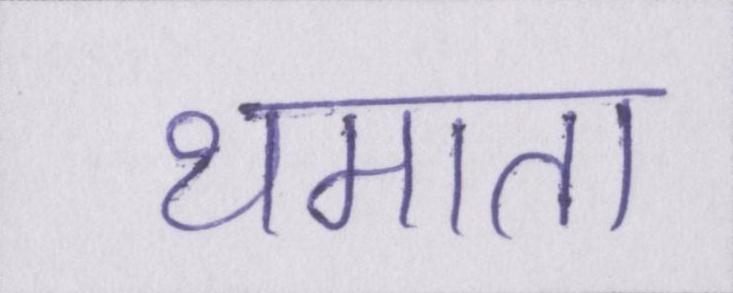 थमाता